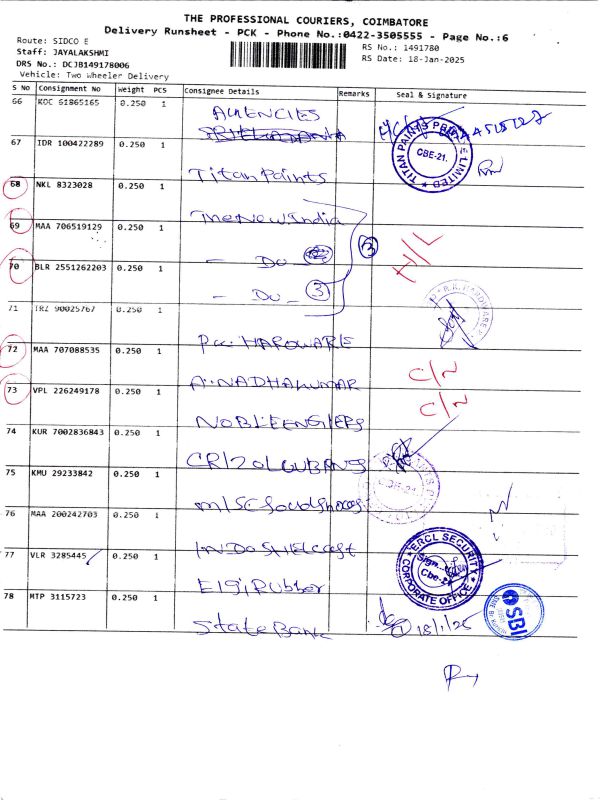 THE PROFESSIONAL COURIERS, COIMBATORE
Delivery Runsheet - PCK - Phone No.:0422-3505555 - Page No.:6
Route: SIDCO E
Staff: JAYALAKSHMI
DRS No.: DCJB149178006
Vehicle: Two Wheeler Delivery
RS No.: 1491780
RS Date: 18-Jan-2025
S No Consignment No Weight PCS Consignee Details Remarks Seal & Signature
66 KOC 61865165 0.250 1
AGENCIES
67 IDR 100422289 0.250 1
Titan Paints
TITAN PAINTS PRIVATE LIMITED
CBE-21.
68 NKL 8323028 0.250 1
The New India
69 MAA 706519129 0.250 1
- Do -
3
N/L
70 BLR 2551262203 0.250 1
- Do - 3
71 TRZ 90025767 0.250 1
HARDWARE
72 MAA 707088535 0.250 1
C/N
73 VPL 226249178 0.250 1
C/N
74 KUR 7002836843 0.250 1
75 KMU 29233842 0.250 1
76 MAA 200242703 0.250 1
77 VLR 3285445 0.250 1
Elgi Rubber
ERCL SECURITY
Sign...
Cbe-21
CORPORATE OFFICE
78 MTP 3115723 0.250 1
State Bank
18/1/25
SBI